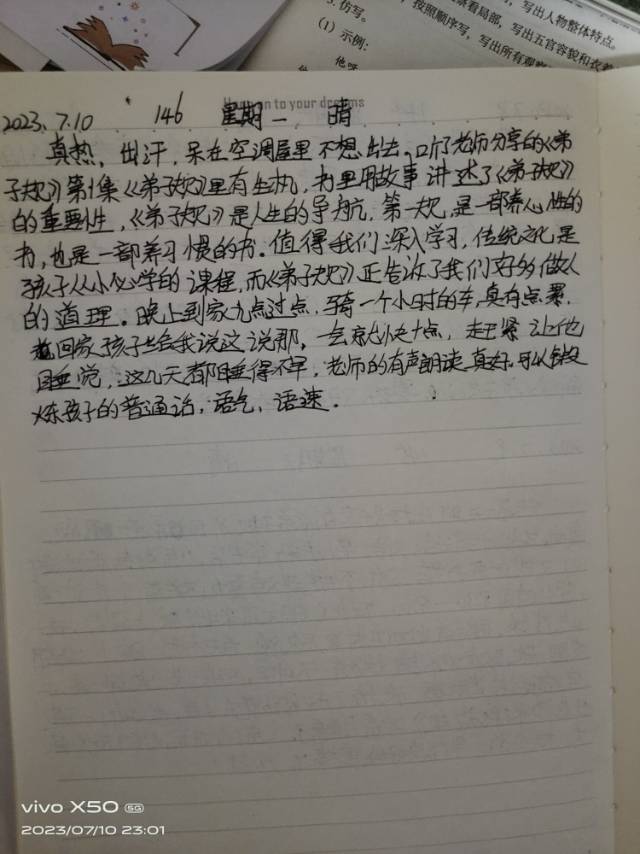 写出人物整体特点。
察看局部,
按照顺序写,写出所有观察
写出五官容貌和衣着
5.仿写。
(1)示例:
to your dreams
2023.7.10 146 星期一 晴
真热,出汗,呆在空调屋里不想出去。听了老师分享的《弟
子规》第1集《弟子规》里有生机,书里用故事讲述了《弟子规》
的重要性,《弟子规》是人生的导航,第一规,是一部养心性的
书,也是一部养习惯的书。值得我们深入学习,传统文化是
孩子从小必学的课程,而《弟子规》正告诉了我们好多做人
的道理。晚上到家九点过点,骑一个小时的车,真有点累,
回家孩子些给我说这说那,一会就快十点,赶紧让他
睡觉,这几天都睡得不早,老师的有声朗读真好,可以锻
炼孩子的普通话,语气,语速.
vivo X50 5G
2023/07/10 23:01